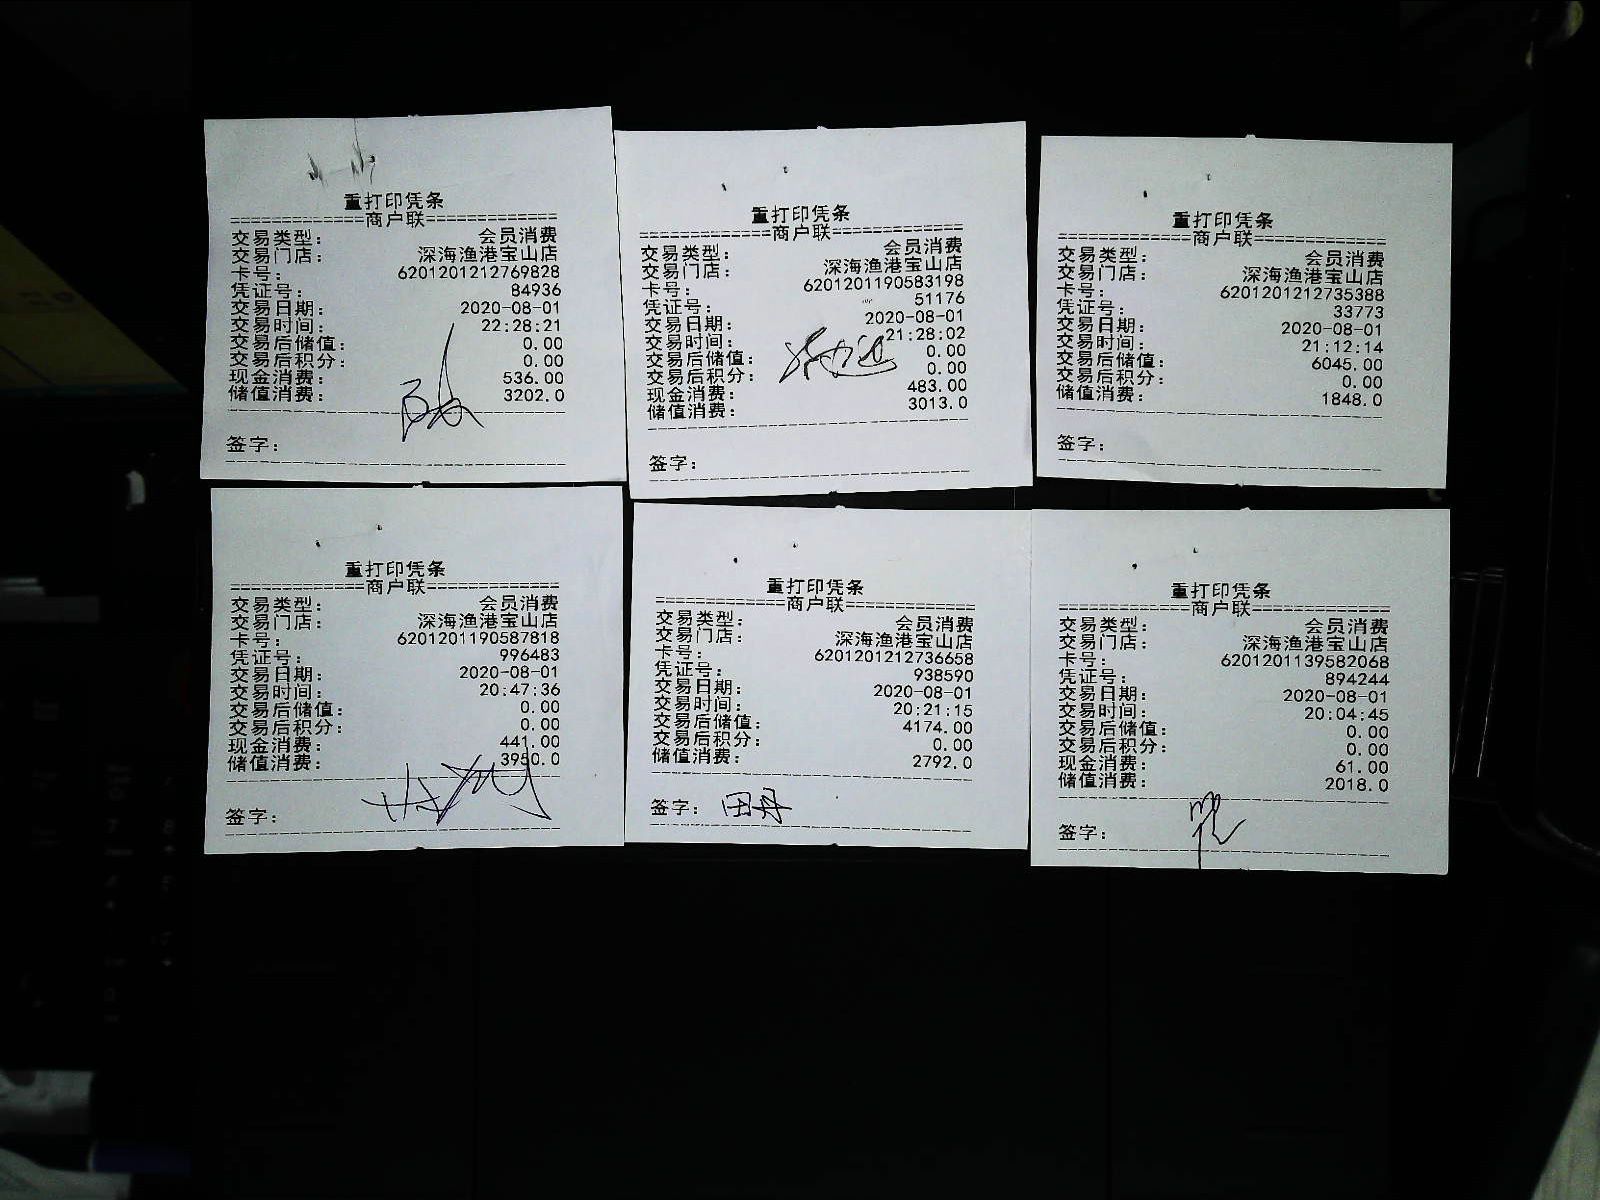 重打印凭条
================商户联================
交易类型： 会员消费
交易门店： 深海渔港宝山店
卡号： 6201201212769828
凭证号： 84936
交易日期： 2020-08-01
交易时间： 22:28:21
交易后储值： 0.00
交易后积分： 0.00
现金消费： 536.00
储值消费： 3202.0
签字：
重打印凭条
================商户联================
交易类型： 会员消费
交易门店： 深海渔港宝山店
卡号： 6201201190583198
凭证号： 51176
交易日期： 2020-08-01
交易时间： 21:28:02
交易后储值： 0.00
交易后积分： 0.00
现金消费： 483.00
储值消费： 3013.0
签字：
重打印凭条
================商户联================
交易类型： 会员消费
交易门店： 深海渔港宝山店
卡号： 6201201212735388
凭证号： 33773
交易日期： 2020-08-01
交易时间： 21:12:14
交易后储值： 6045.00
交易后积分： 0.00
储值消费： 1848.0
签字：
重打印凭条
================商户联================
交易类型： 会员消费
交易门店： 深海渔港宝山店
卡号： 6201201190587818
凭证号： 996483
交易日期： 2020-08-01
交易时间： 20:47:36
交易后储值： 0.00
交易后积分： 0.00
现金消费： 441.00
储值消费： 3950.0
签字：
重打印凭条
================商户联================
交易类型： 会员消费
交易门店： 深海渔港宝山店
卡号： 6201201212736658
凭证号： 938590
交易日期： 2020-08-01
交易时间： 20:21:15
交易后储值： 4174.00
交易后积分： 0.00
储值消费： 2792.0
签字： 田丹
重打印凭条
================商户联================
交易类型： 会员消费
交易门店： 深海渔港宝山店
卡号： 6201201139582068
凭证号： 894244
交易日期： 2020-08-01
交易时间： 20:04:45
交易后储值： 0.00
交易后积分： 0.00
现金消费： 61.00
储值消费： 2018.0
签字：